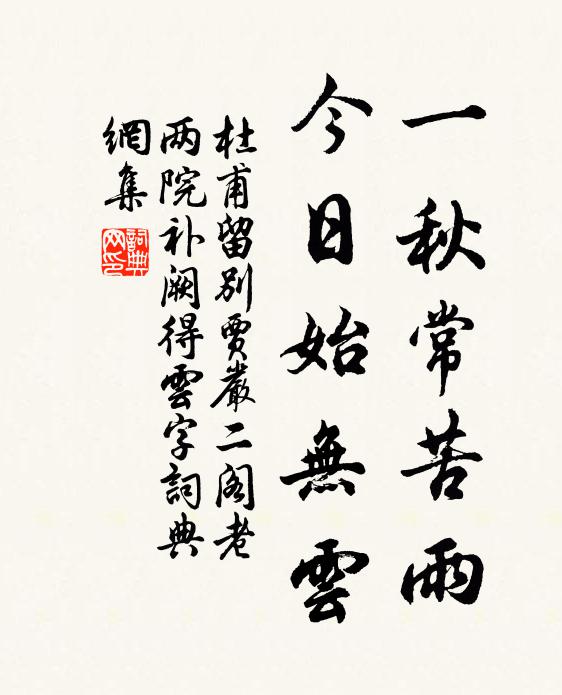 一秋常苦雨
今日始無雲
杜甫留別賈嚴二閣老
两院补阙得雲字詞典
網集
詞典網印